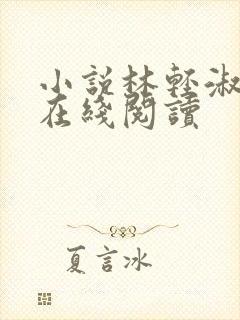 小說林輕淑
在綫閱讀
夏言冰